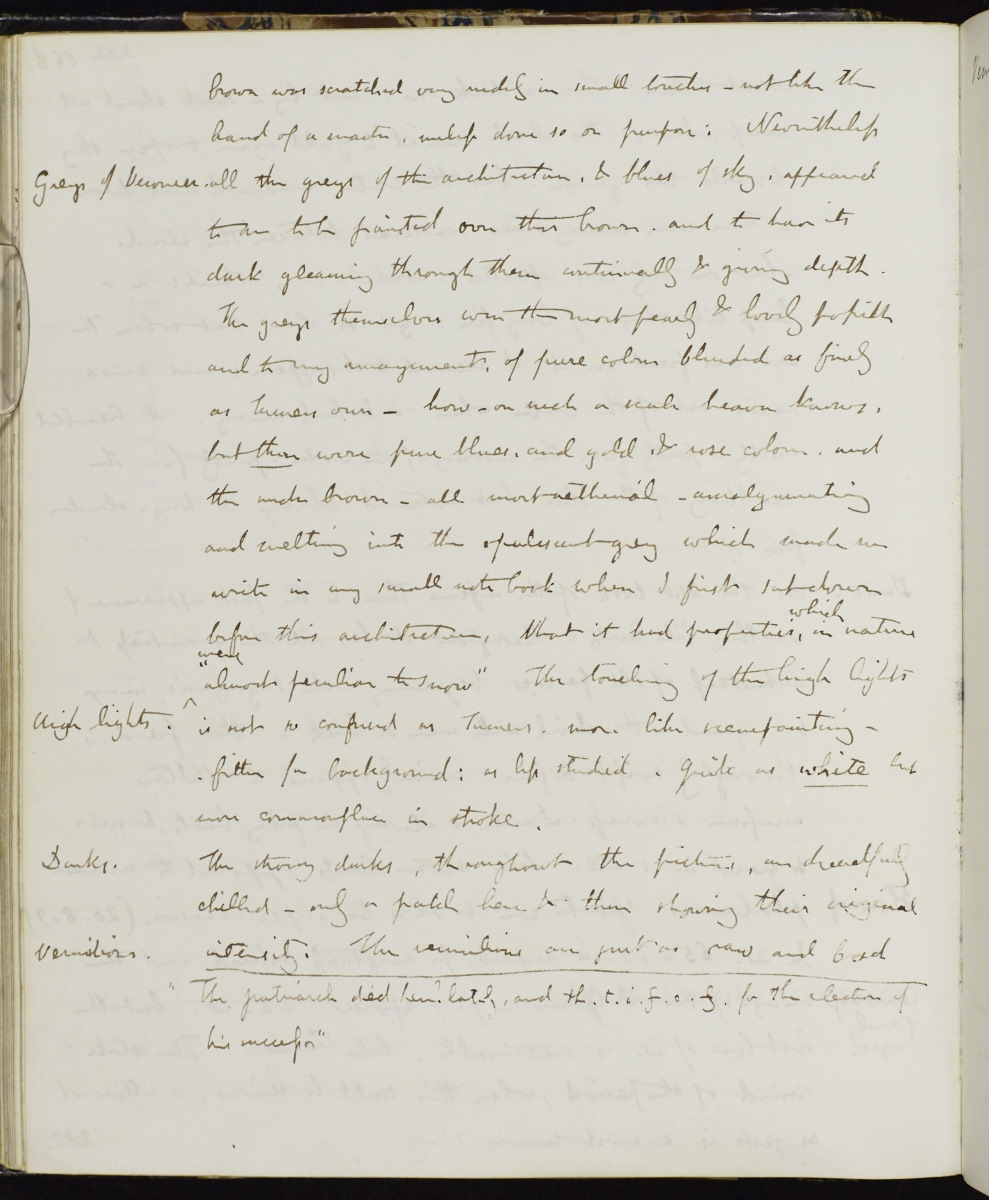 brown was scratched very rudely in small touches - not like the
hand of a master, unless done so on purpose: Nevertheless
Greys of Veronese. all the greys of the architecture, & blues of sky, appeared
to me to be painted over this brown. and to have its
dark gleaming through them continually & giving depth.
The greys themselves were the most pearly & lovely possible
and to my amazement, of pure colour blended as finely
as Turners own - how - on such a scale heaven knows,
but there were pure blues, and gold & rose colour, and
the under brown - all most aetherial - amalgamating
and melting into the opalescent grey which made me
write in my small note book when I first sat down
before this architecture, that it had properties, which in nature
were
"almost peculiar to snow" The touching of the high lights
High lights. is not so confused as Turners. more like scenepainting -
. fitter for background: as less studied, quite as white but
more commonplace in stroke.
Darks. The strong darks, throughout the picture, are dreadfully
chilled - only a patch here & there showing their original
Vermilions. intensity. The vermilions are just as raw and bad
"The patriarch died here lately, and th. t. i. f. o. g. for the election of
his successor"